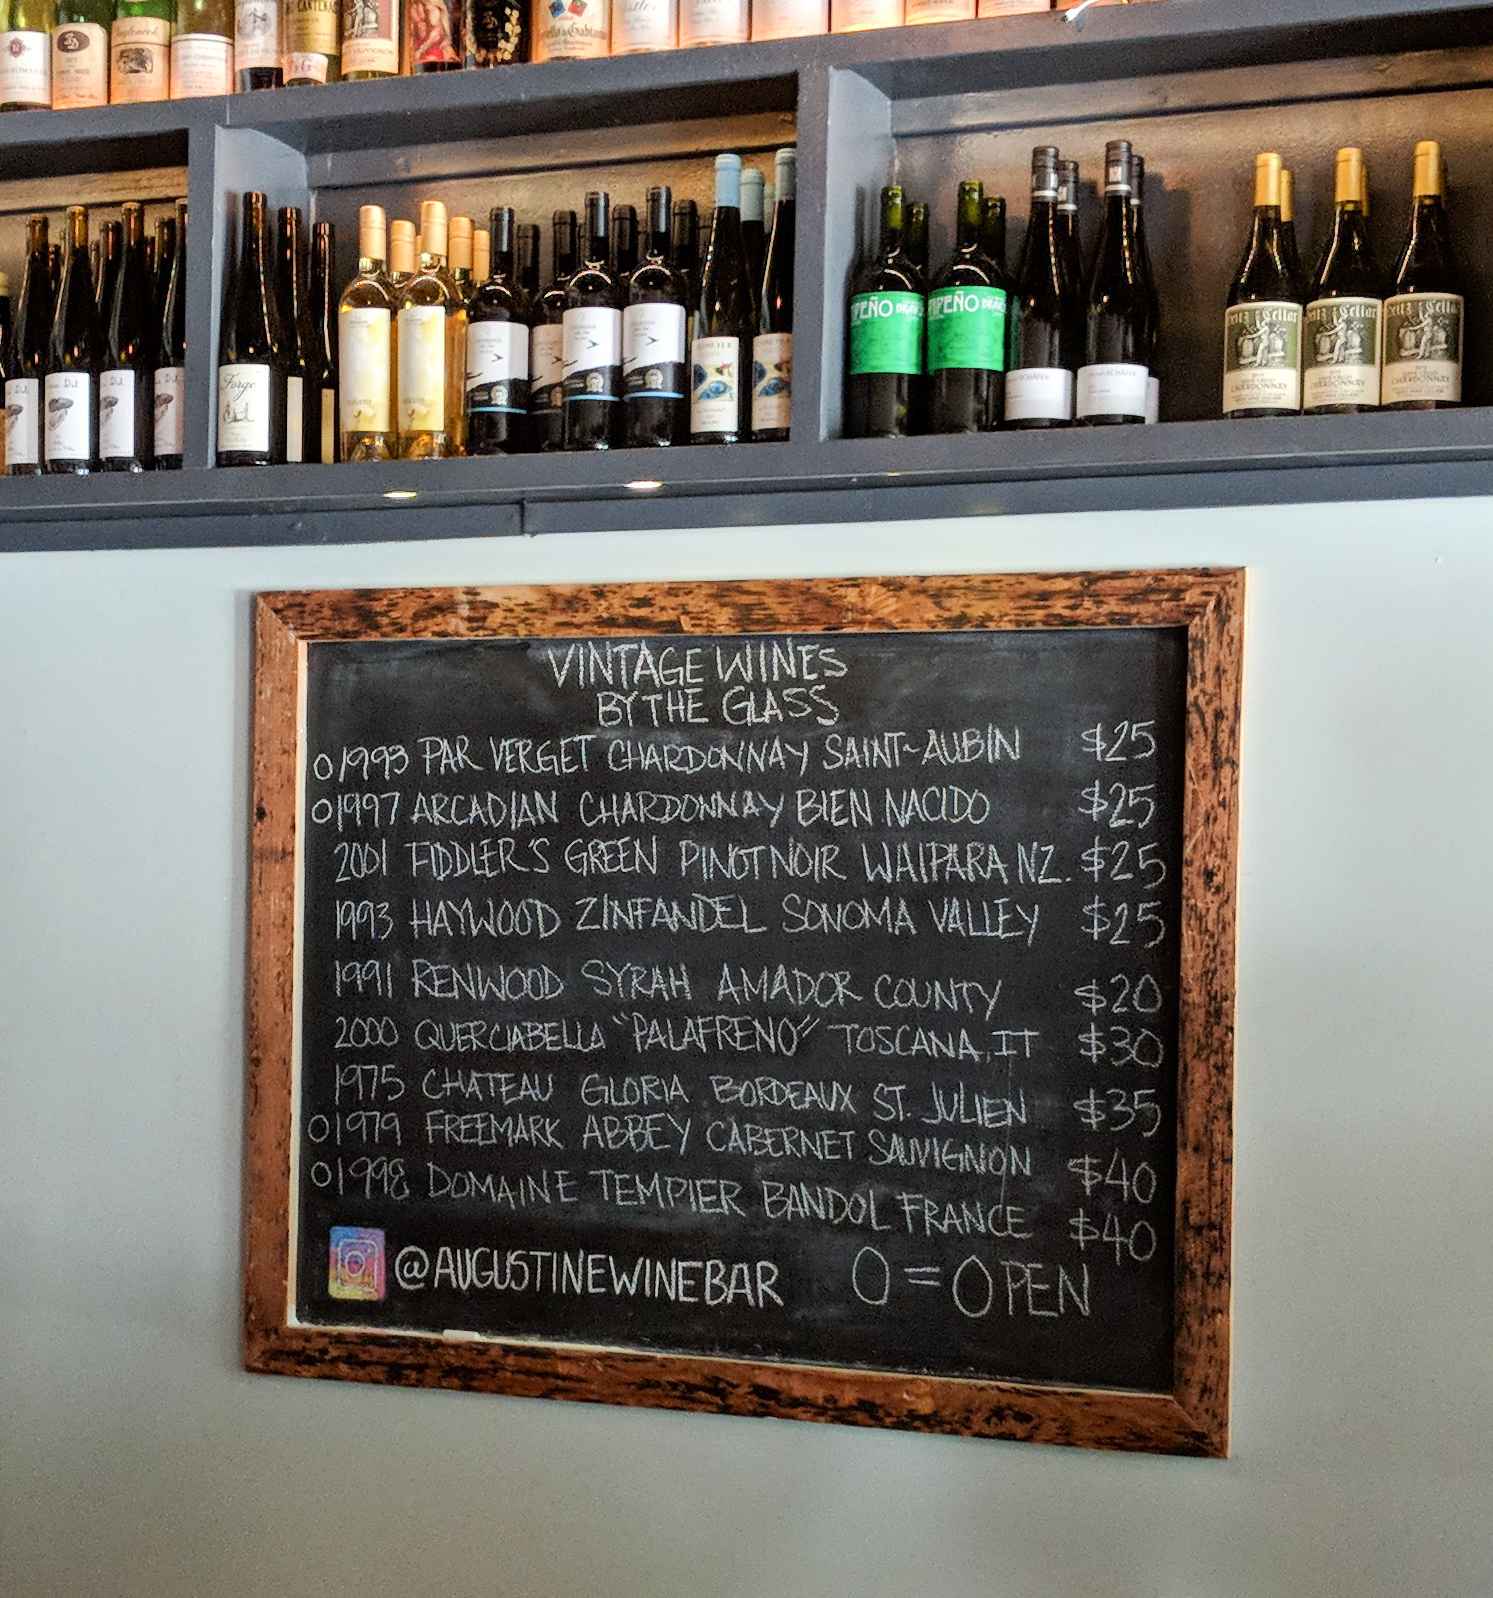 Forge
PEÑO
IPEÑO
SCHÄFER
SCHÄFER
Heitz Cellar
CHARDONNAY
CHARDONNAY
CHARDONNAY
VINTAGE WINES
BY THE GLASS
O 1993 PAR VERGET CHARDONNAY SAINT-AUBIN $25
O 1997 ARCADIAN CHARDONNAY BIEN NACIDO $25
2001 FIDDLER'S GREEN PINOT NOIR WAIPARA NZ. $25
1993 HAYWOOD ZINFANDEL SONOMA VALLEY $25
1991 RENWOOD SYRAH AMADOR COUNTY $20
2000 QUERCIABELLA "PALAFRENO" TOSCANA, IT $30
1975 CHATEAU GLORIA BORDEAUX ST. JULIEN $35
O 1979 FREEMARK ABBEY CABERNET SAUVIGNON $40
O 1998 DOMAINE TEMPIER BANDOL FRANCE $40
@AUGUSTINEWINEBAR O = OPEN